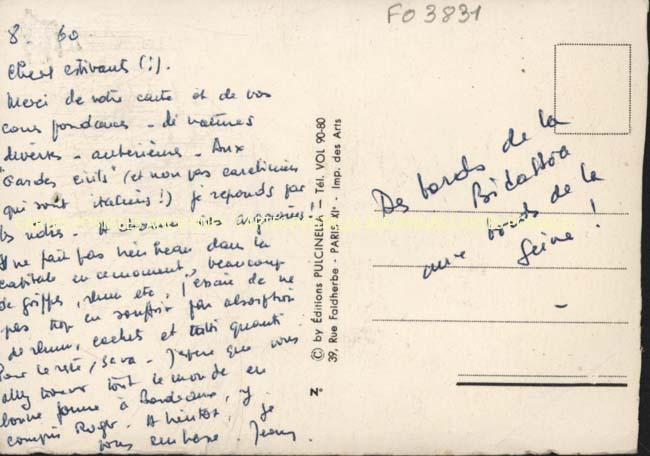 FO 3831
8 60
Chers estivants (!).
Merci de votre carte et de vos
diverses - antérieures - Aux
"Gardes civils" (et non pas
qui sont italiens!) je réponds par
les nôtres - A chacun ses
Il ne fait pas très beau dans la
capitale en ce moment, beaucoup
de grippes, rhume etc, j'essaie de ne
pas trop en souffrir par absorption
de rhum, cachets et
Pour le reste, ça va - J'espère que vous
allez trouver tout le monde en
bonne forme à Bordeaux, y
compris Roger. A bientôt, je
vous embrasse.
© by Editions PULCINELLA — Tél. VOL 90-80
39, Rue Faidherbe - PARIS XIe - Imp. des Arts
N°
Des bords de la
Bidassoa
aux bords de la
Seine !